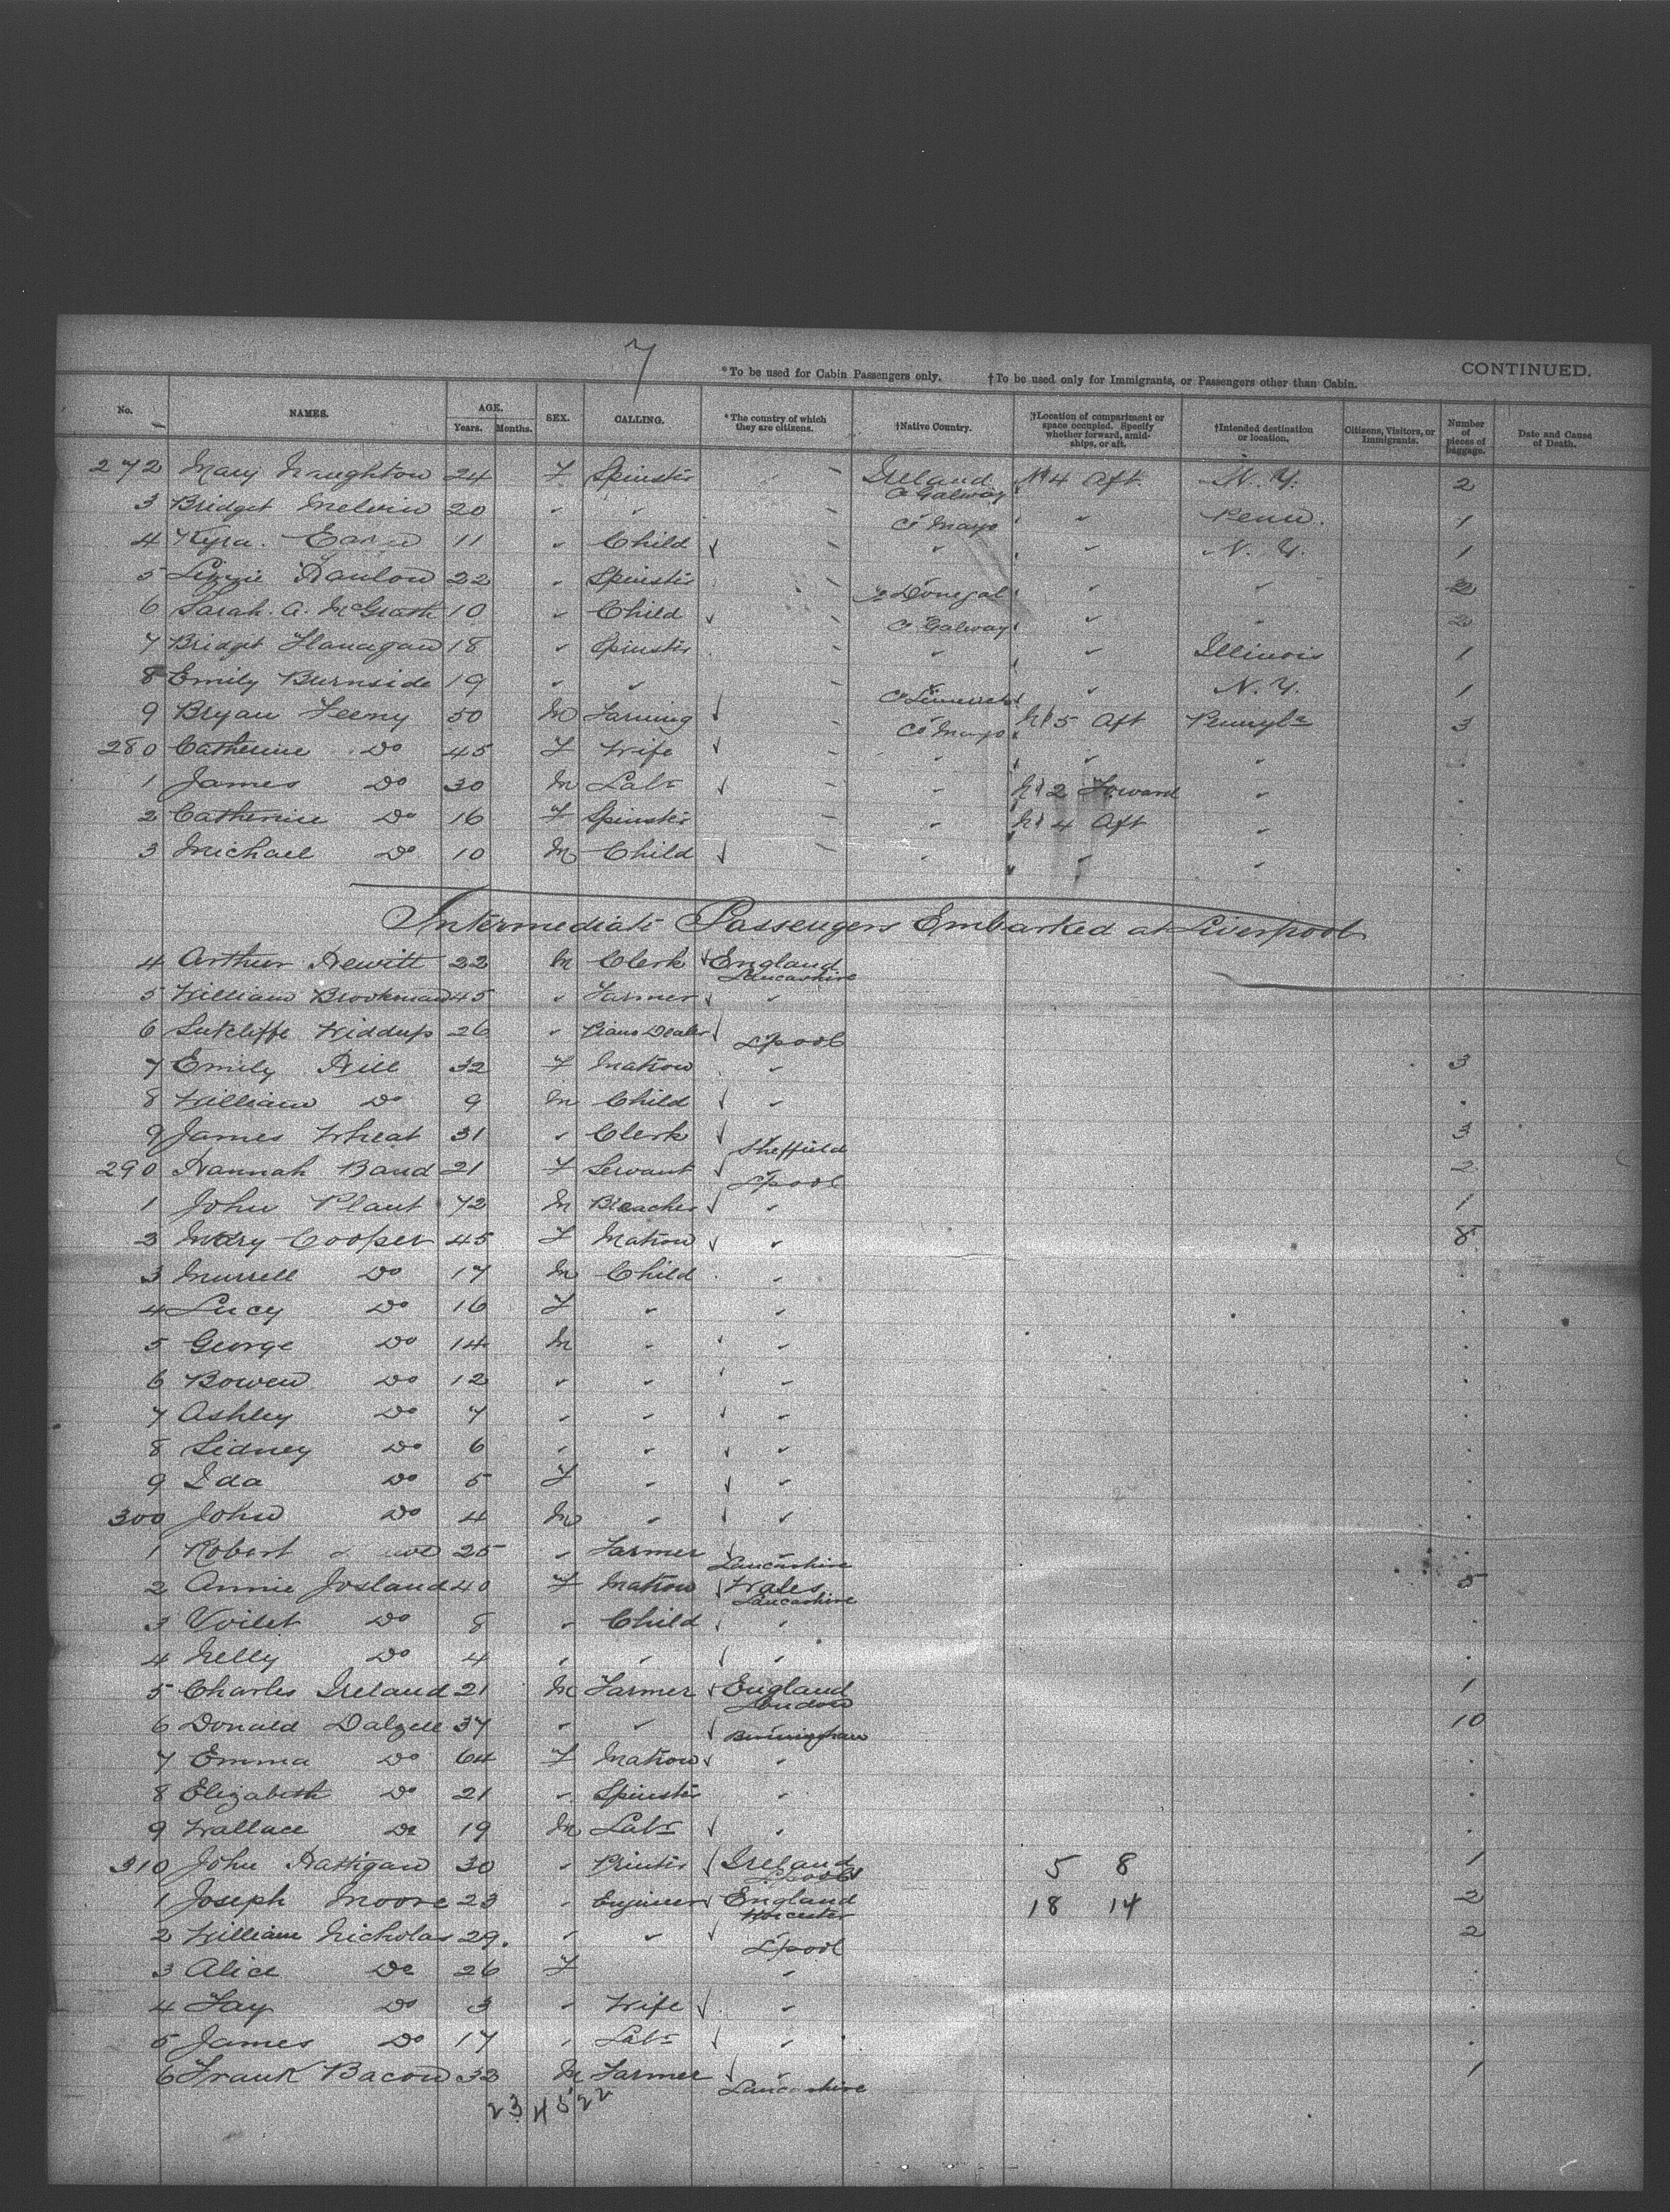 7
*To be used for Cabin Passengers only. †To be used only for Immigrants, or Passengers other than Cabin. CONTINUED.
No. NAMES. AGE. Years. Months. SEX. CALLING. *The country of which they are citizens. †Native Country. †Location of compartment or space occupied. Specify whether forward, amidships, or aft. †Intended destination or location. Citizens, Visitors, or Immigrants. Number of pieces of baggage. Date and Cause of Death.
272 Mary Naughton 24 F Spinster Ireland Co Galway No 4 Aft. N.Y. 2
3 Bridget Melvin 20 " " Co Mayo " " Penn. 1
4 11 " Child " " N.Y. 1
5 Lizzie Hanlon 22 " Spinster Co Donegal " " 2
6 Sarah. A. McGrath 10 " Child Co Galway " " 2
7 Bridget Flanagan 18 " Spinster " " Illinois 1
8 Emily Burnside 19 " " Co Limerick " N.Y. 1
9 Bryan Feeny 50 M Farming Co Mayo No 5 Aft Pennyla 3
280 Catherine Do 45 F Wife " " "
1 James Do 30 M Labr " No 2 Forward "
2 Catherine Do 16 F Spinster " No 4 Aft "
3 Michael Do 10 M Child " " "
Intermediate Passengers Embarked at Liverpool
4 Arthur Hewitt 22 M Clerk England Lancashire
5 William Brookman 45 " Farmer "
6 Sutcliffe Widdup 26 " Piano Dealer L'pool
7 Emily Hill 32 F Matron " 3
8 William Do 9 M Child "
9 James Wheat 31 " Clerk Sheffield 3
290 Hannah Band 21 F Servant L'pool 2
1 John Plant 72 M Bleacher " 1
2 Mary Cooper 45 F Matron " 8
3 Murrell Do 17 M Child "
4 Lucy Do 16 F " "
5 George Do 14 M " "
6 Bowen Do 12 " " "
7 Ashley Do 7 " " "
8 Sidney Do 6 " " "
9 Ida Do 5 F " "
300 John Do 4 M " "
1 Robert 25 " Farmer Lancashire
2 Annie Josland 40 F Matron Wales Lancashire 5
3 Voilet Do 8 " Child "
4 Nelly Do 4 " " "
5 Charles Ireland 21 M Farmer England London 1
6 Donald Dalzell 37 " " Birmingham 10
7 Emma Do 64 F Matron "
8 Elizabeth Do 21 " Spinster "
9 Wallace Do 19 M Labr "
310 John Hattigan 30 " Printer Ireland 5 8 1
1 Joseph Moore 23 " Engineer England Worcester 18 14 2
2 William Nicholas 29. " " L'pool 2
3 Alice Do 26 F "
4 Fay Do 3 " Wife "
5 James Do 17 " Labr "
6 Frank Bacon 32 M Farmer Lancashire 1